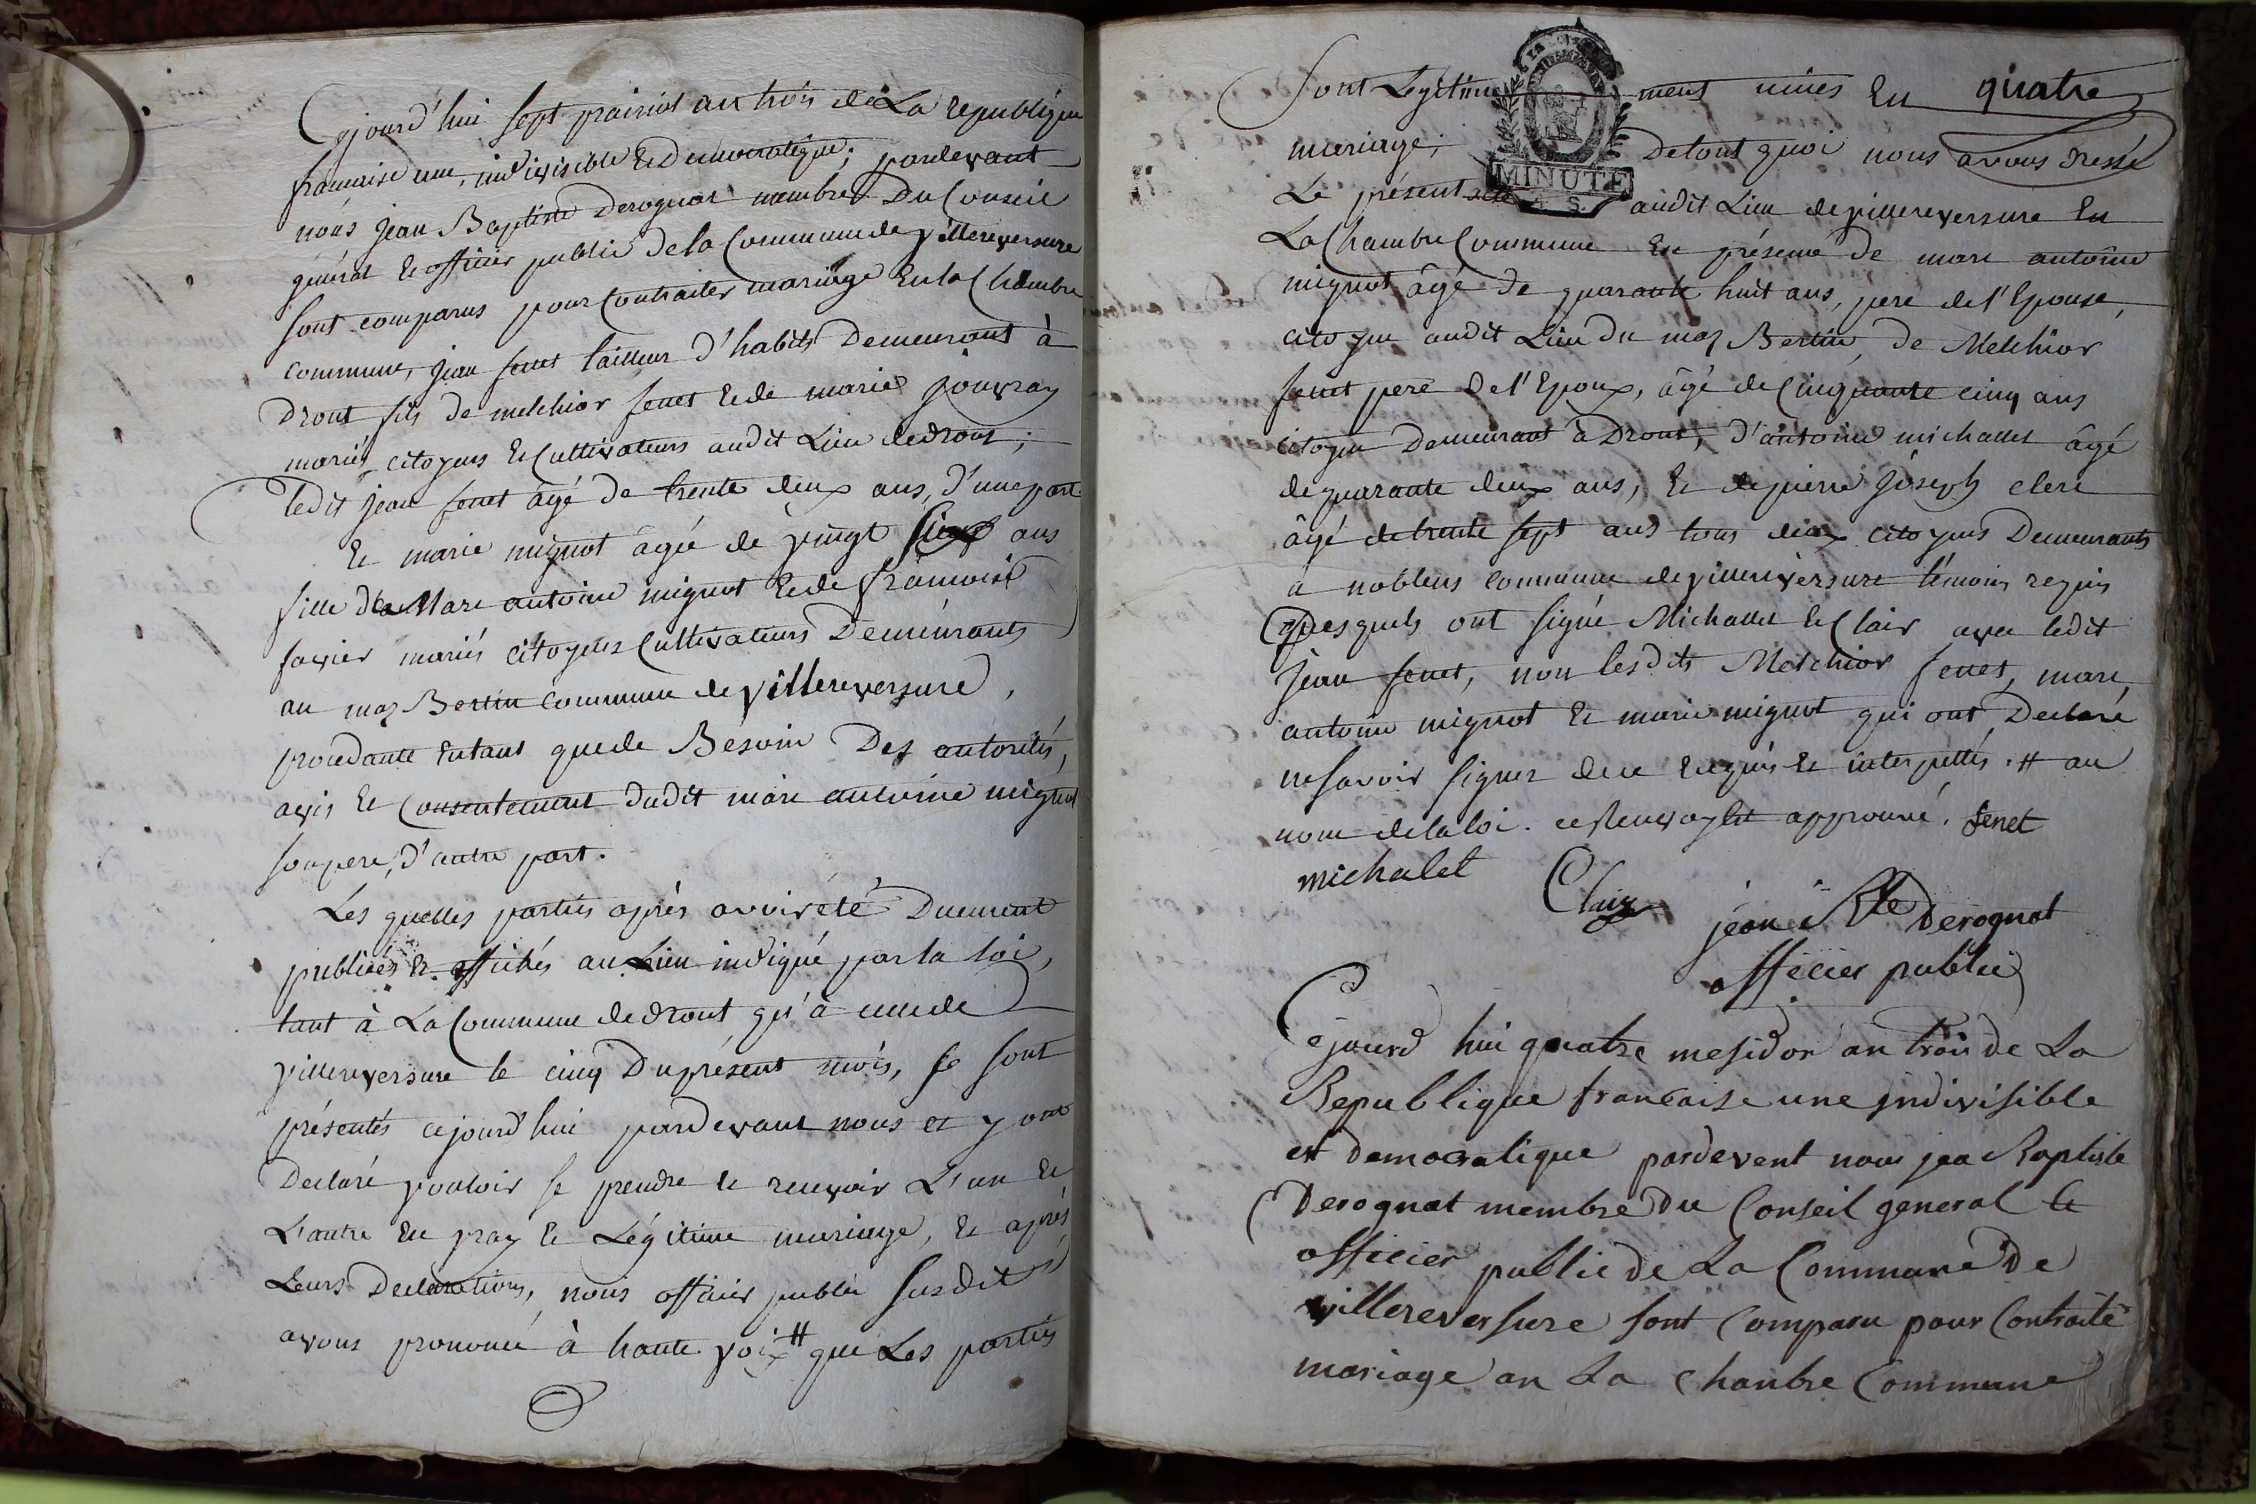 Cejourd'hui sept prairial an trois de La republique
francaise une, indivisible Et democratique; pardevant
nous jean Baptiste Derognat membre Du Conseil
général Et officier public de la Commune de villereversure
sont comparus pour Contracter mariage En la Chambre
commune, jean fenet tailleur d'habits Demeurant à
Drout fils de melchior fenet Et de marie jouvray
mariés citoyens Et Cultivateurs audit Lieu de drout;
ledit jean fenet âgé de trente deux ans, d'une part
Et marie mignot âgée de vingt ans
fille de Marc antoine mignot Et de francoise
favier mariés citoyens Cultivateurs Demeurants
au maz Bertin commune de villereversure,
procedante Entant que de Besoin Des autorités,
avis Et Consentement dudit marc antoine mignot
son pere, d'autre part.
Les quelles parties après avoir été Duement
publiées Et affichés au Lieu indiqué par la loi,
tant à La Commune de drout qu'à celle de
villereversure le cinq Du présent mois, se sont
présentés cejourd'hui pardevant nous et y ont
Declaré vouloir se prendre et recevoir L'un Et
L'autre En vray Et Légitime mariage, Et après
Leurs Declarations, nous officier public susdit
avons prononcé à haute voix # que Les parties
sont Legitimement unies En quatre
mariage; De tout quoi nous avons dressé
Le présent acte audit Lieu de villereversure En
La Chambre Commune En présence de marc antoine
mignot âgé de quarante huit ans, pere de l'Epouse,
citoyen audit Lieu du maz Bertin, de Melchior
fenet pere De l'Epoux, âgé de Cinquante cinq ans
citoyen Demeurant à Drout, d'antoine michallet âgé
de quarante deux ans, Et de pierre joseph clerc
âgé de trente sept ans tous deux citoyens Demeurants
a noblens commune de villereversure témoins requis
Desquels ont signé Michallet Et Clair avec ledit
jean fenet, non lesdits Melchior fenet, marc
antoine mignot Et marie mignot qui ont Declaré
ne savoir signer de ce Enquis Et interpellés. # au
nom de la loi. ce Renvoy Est approuvé. fenet
michalet
Clair jean Bte Derognat
officier public
Cejourd hui quatre mesidor an trois de La
Republique francaise une jndivisible
et democratique pardevent nous jea Baptiste
Derognat membre Du Conseil general Et
officier public de La Commune De
villereversure sont Comparu pour Contraité
mariage an La Chanbre Commune